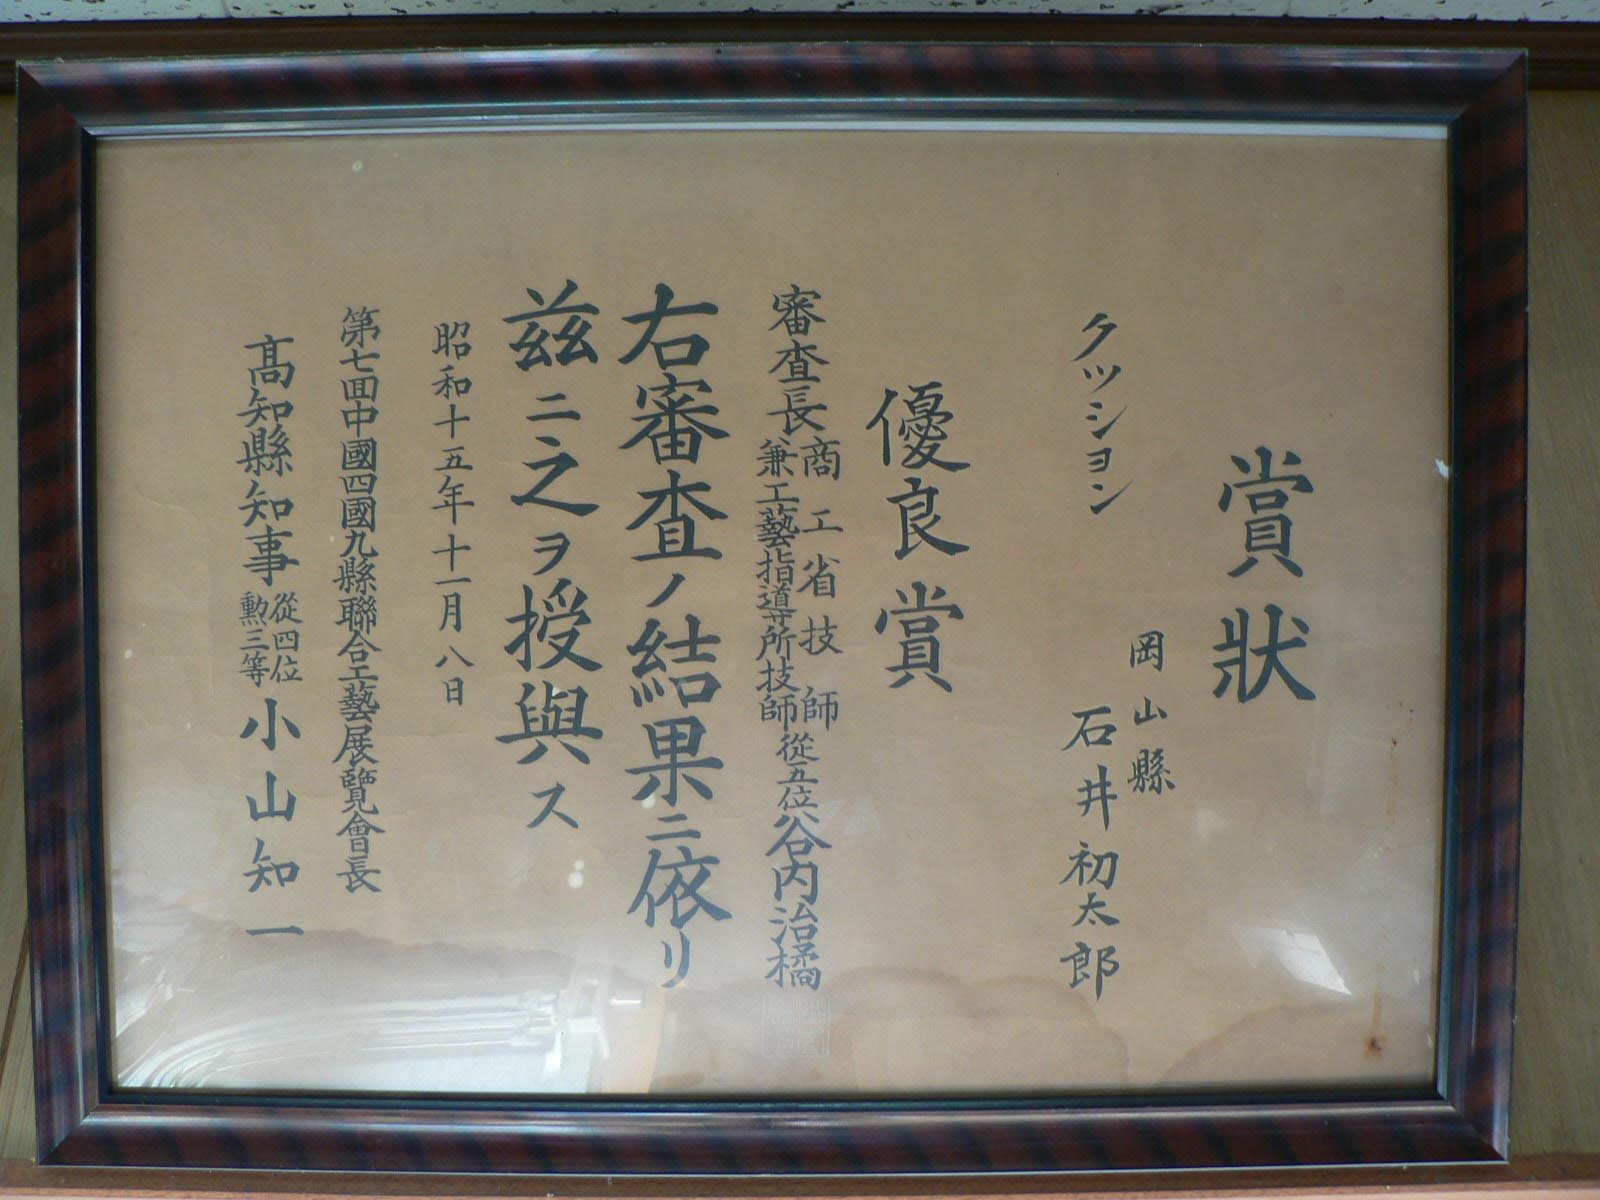 賞狀
岡山縣
クッション 石井初太郎
優良賞
審査長 商工省技師
兼工藝指導所技師 從五位 谷内治橘
右審査ノ結果ニ依リ
茲ニ之ヲ授與ス
昭和十五年十一月八日
第七囬中國四國九縣聯合工藝展覽會長
髙知縣知事 從四位
勲三等 小山知一